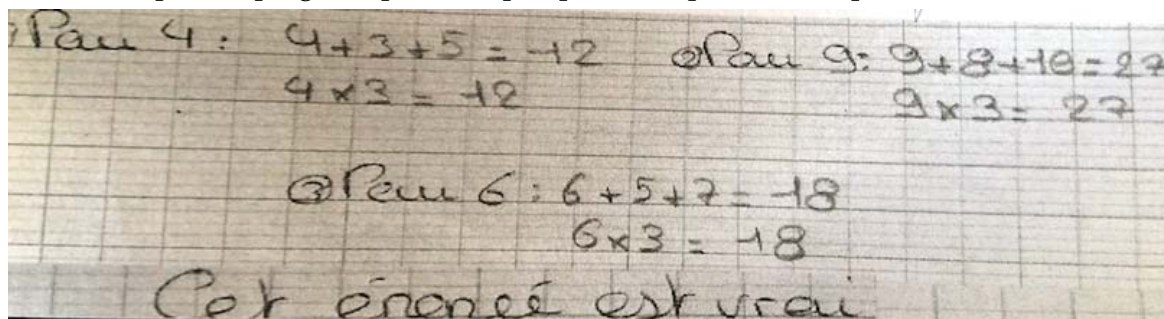 Pour 4 : 4+3+5 = 12 ② Pour 9 : 9+8+10 = 27
4 × 3 = 12 9 × 3 = 27
③ Pour 6 : 6+5+7 = 18
6×3 = 18
Cet énoncé est vrai